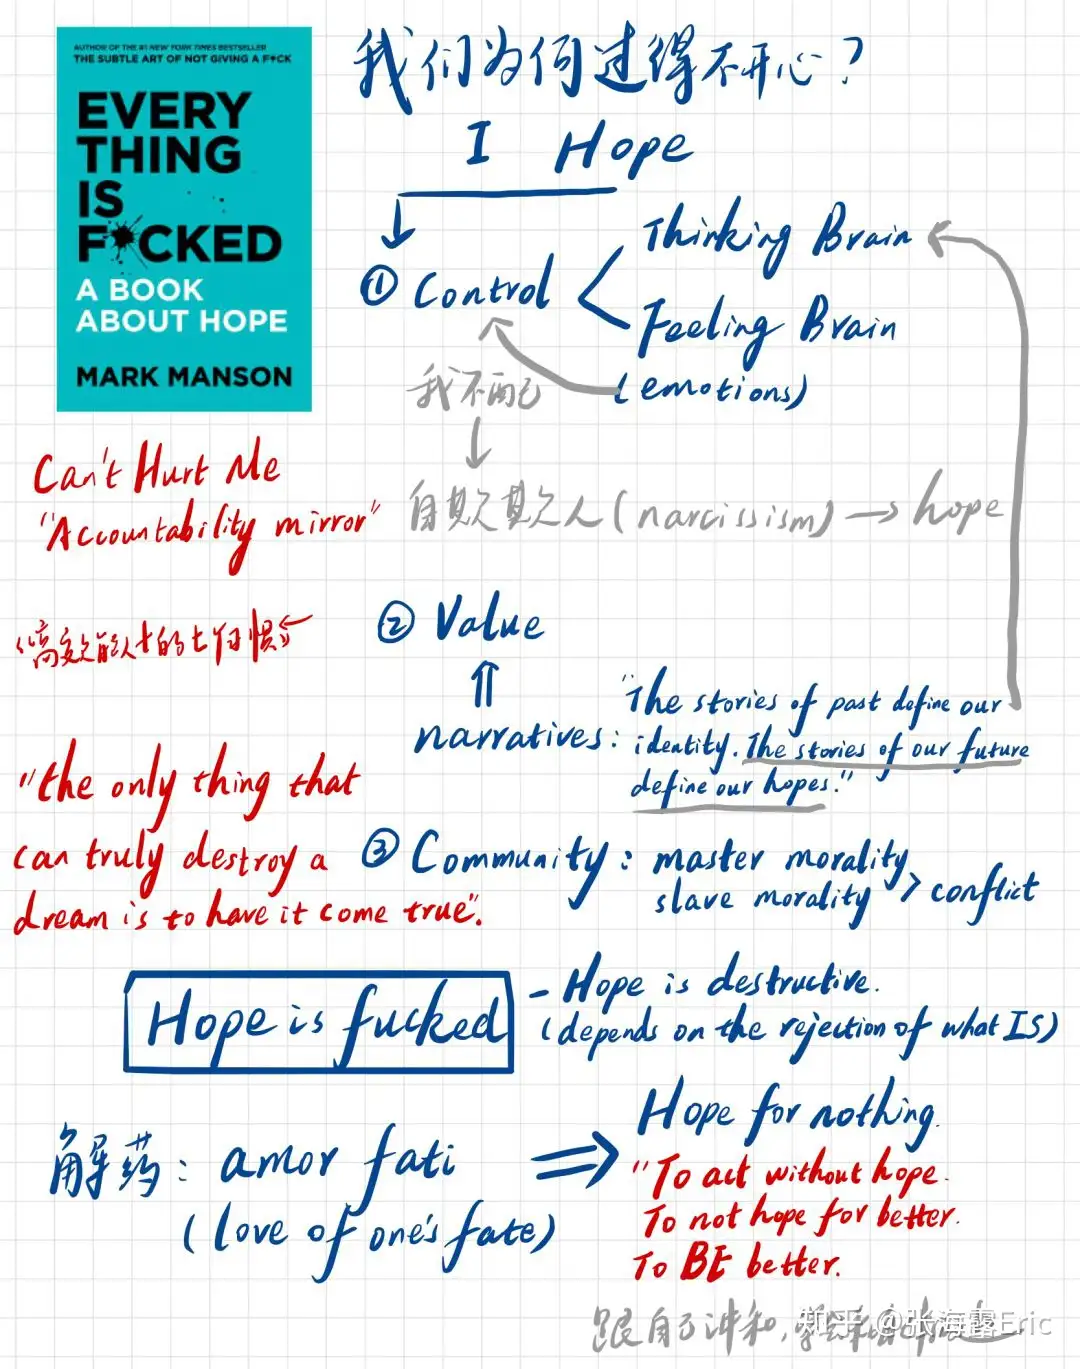 AUTHOR OF THE #1 NEW YORK TIMES BESTSELLER
THE SUBTLE ART OF NOT GIVING A F*CK
EVERY
THING
IS
F*CKED
A BOOK
ABOUT HOPE
MARK MANSON
我们为何过得不开心？
I Hope
① Control
Thinking Brain
Feeling Brain
(emotions)
我不配
自欺欺人(narcissism) → hope
Can't Hurt Me
"Accountability mirror"
《高效能人士的七个习惯》
② Value
narratives:
"The stories of past define our
identity. The stories of our future
define our hopes."
"the only thing that
can truly destroy a
dream is to have it come true".
③ Community: master morality
slave morality > conflict
Hope is fucked
- Hope is destructive.
(depends on the rejection of what IS)
解药: amor fati
(love of one's fate)
Hope for nothing.
"To act without hope.
To not hope for better.
To BE better.
跟自己讲和,
知乎 @张海露Eric